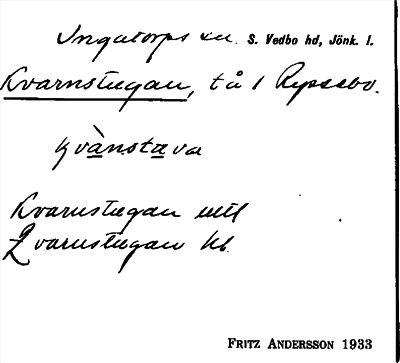 Ingatorps sn. S. Vedbo hd, Jönk. l.
Kvarnstugan, tå 1 Rypsebo.
kvànstava
Kvarnstugan uttl
Qvarnstugan kb
FRITZ ANDERSSON 1933